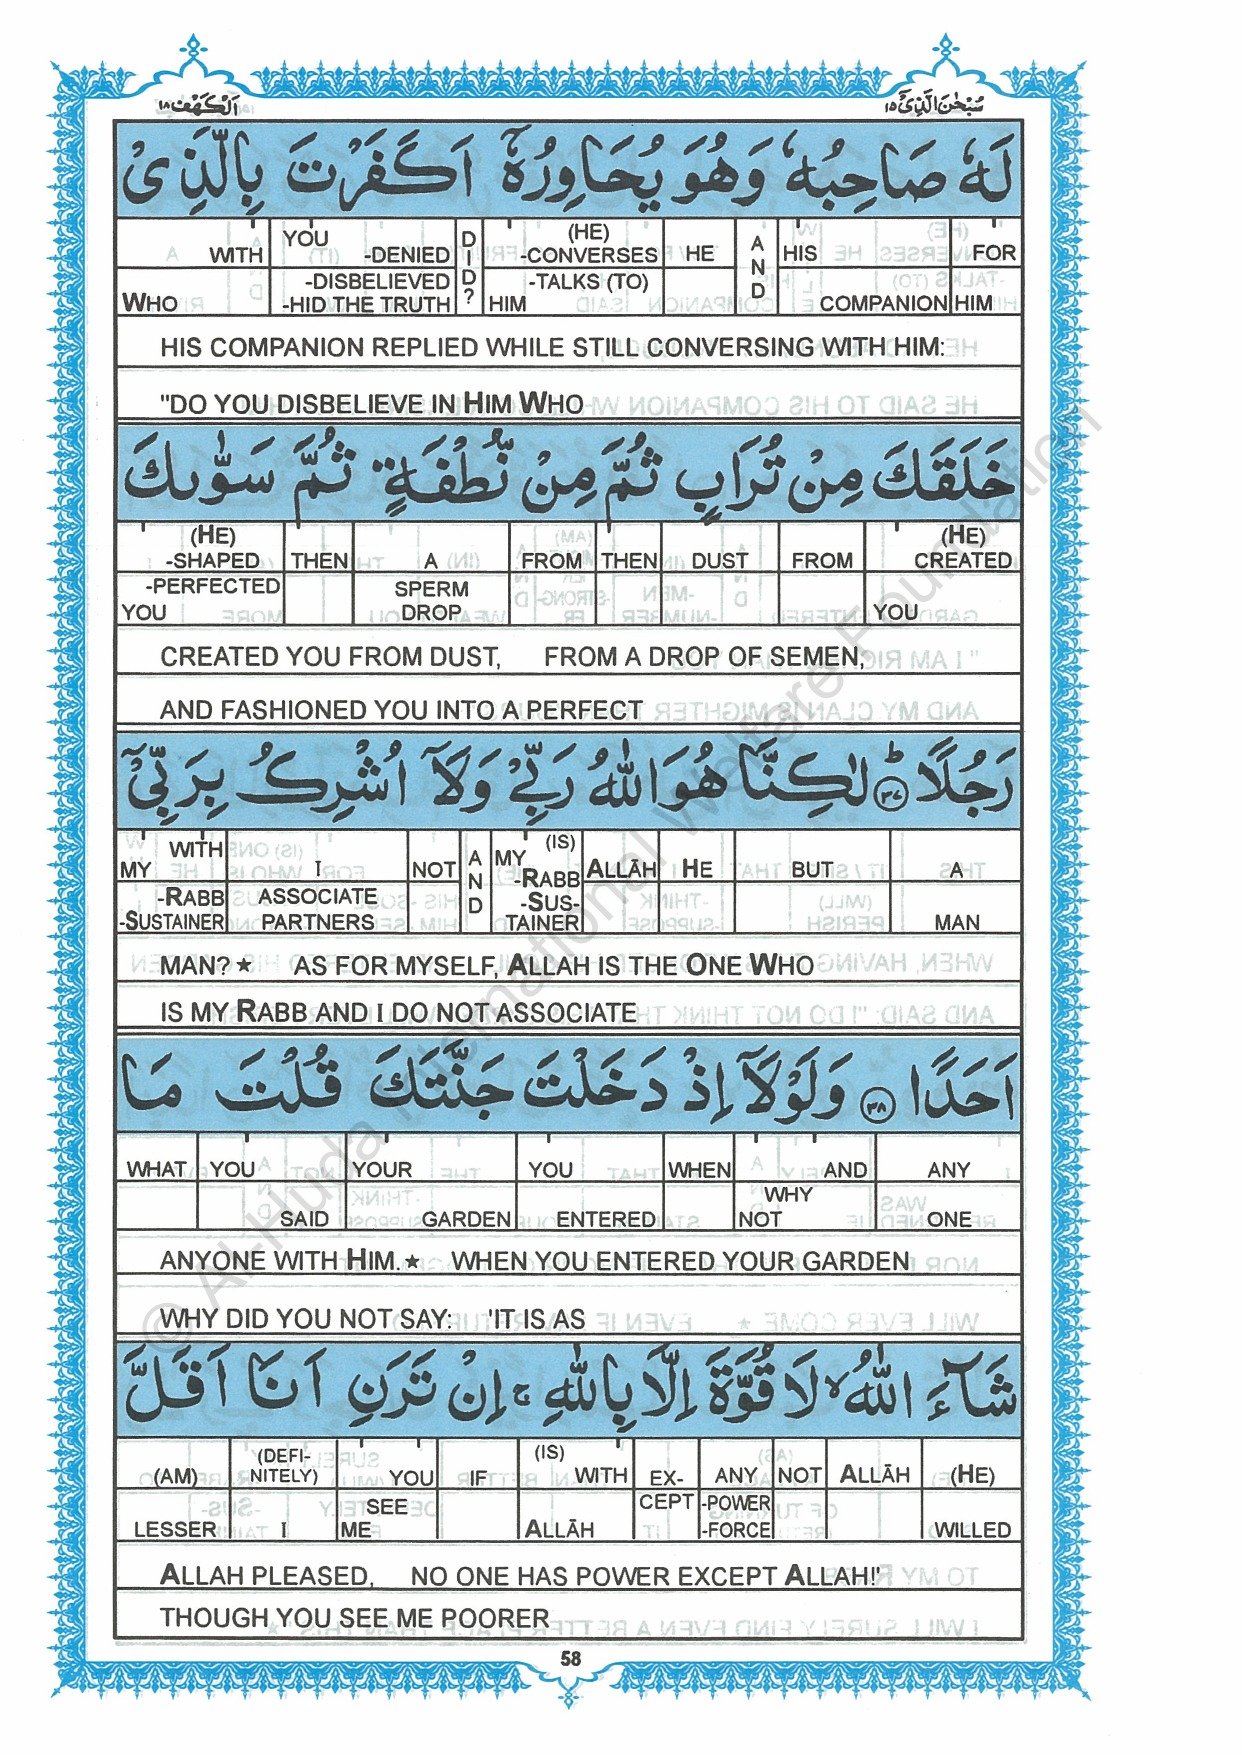 الكهف ١٨
سبحن الذي ١٥
لَهٗ صَاحِبُهٗ وَهُوَ يُحَاوِرُهٗۤ اَكَفَرْتَ بِالَّذِىْ
WITH YOU -DENIED DID? (HE) -CONVERSES HE AND HIS FOR
WHO -DISBELIEVED -HID THE TRUTH HIM -TALKS (TO) COMPANION HIM
HIS COMPANION REPLIED WHILE STILL CONVERSING WITH HIM:
"DO YOU DISBELIEVE IN HIM WHO
خَلَقَكَ مِنْ تُرَابٍ ثُمَّ مِنْ نُّطْفَةٍ ثُمَّ سَوّٰىكَ
(HE) -SHAPED THEN A FROM THEN DUST FROM (HE) CREATED
-PERFECTED YOU SPERM DROP YOU
CREATED YOU FROM DUST, FROM A DROP OF SEMEN,
AND FASHIONED YOU INTO A PERFECT
رَجُلًا ؕ ٣٧ لٰكِنَّا هُوَ اللّٰهُ رَبِّىْ وَلَاۤ اُشْرِكُ بِرَبِّىْۤ
MY WITH I NOT AND MY (IS) -RABB ALLĀH HE BUT A
-RABB -SUSTAINER ASSOCIATE PARTNERS -SUS-TAINER MAN
MAN?★ AS FOR MYSELF, ALLAH IS THE ONE WHO
IS MY RABB AND I DO NOT ASSOCIATE
اَحَدًا ٣٨ وَلَوْلَاۤ اِذْ دَخَلْتَ جَنَّتَكَ قُلْتَ مَا
WHAT YOU YOUR YOU WHEN AND ANY
SAID GARDEN ENTERED WHY NOT ONE
ANYONE WITH HIM.★ WHEN YOU ENTERED YOUR GARDEN
WHY DID YOU NOT SAY: 'IT IS AS
شَآءَ اللّٰهُ ۙ لَا قُوَّةَ اِلَّا بِاللّٰهِ ۚ اِنْ تَرَنِ اَنَا اَقَلَّ
(AM) (DEFI-NITELY) YOU IF (IS) WITH EX- ANY NOT ALLĀH (HE)
LESSER I SEE ME ALLĀH CEPT -POWER -FORCE WILLED
ALLAH PLEASED, NO ONE HAS POWER EXCEPT ALLAH!'
THOUGH YOU SEE ME POORER
58
© Al-Huda International Welfare Foundation